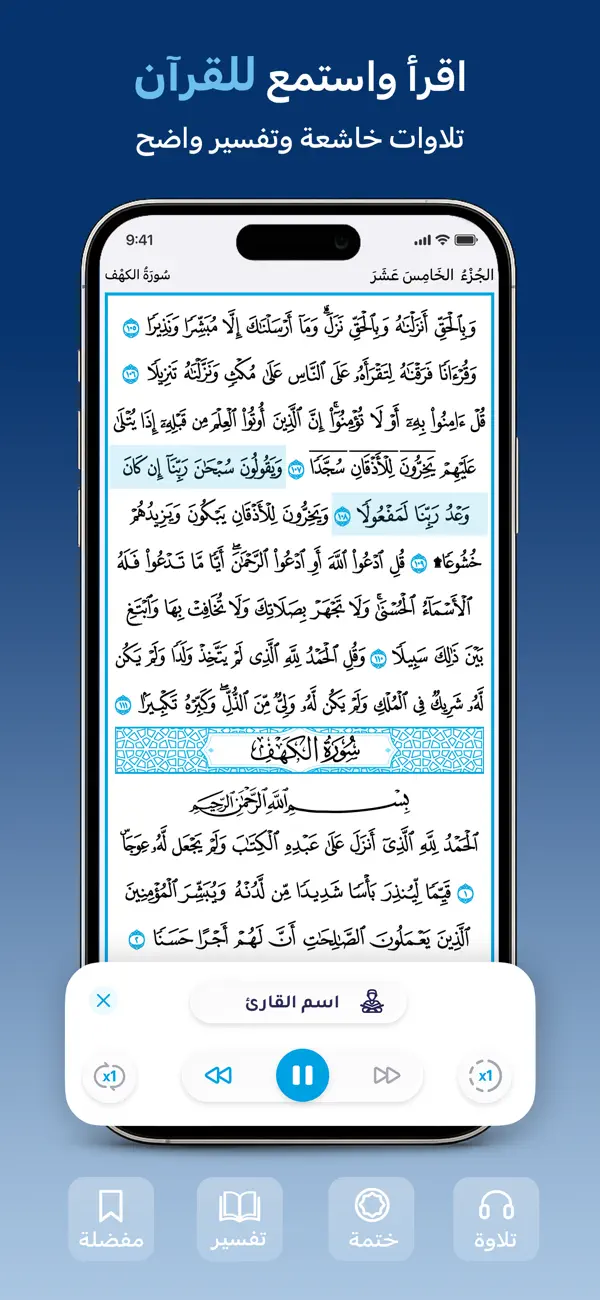 اقرأ واستمع للقرآن
تلاوات خاشعة وتفسير واضح
9:41
الجُزْءُ الخَامِسَ عَشَرَ
سُورَةُ الكَهْف
وَبِٱلْحَقِّ أَنزَلْنَٰهُ وَبِٱلْحَقِّ نَزَلَۗ وَمَآ أَرْسَلْنَٰكَ إِلَّا مُبَشِّرًا وَنَذِيرًا ١٠٥
وَقُرْءَانًا فَرَقْنَٰهُ لِتَقْرَأَهُۥ عَلَى ٱلنَّاسِ عَلَىٰ مُكْثٍ وَنَزَّلْنَٰهُ تَنزِيلًا ١٠٦
قُلْ ءَامِنُوا۟ بِهِۦٓ أَوْ لَا تُؤْمِنُوٓا۟ۚ إِنَّ ٱلَّذِينَ أُوتُوا۟ ٱلْعِلْمَ مِن قَبْلِهِۦٓ إِذَا يُتْلَىٰ
عَلَيْهِمْ يَخِرُّونَ لِلْأَذْقَانِ سُجَّدًا ١٠٧ وَيَقُولُونَ سُبْحَٰنَ رَبِّنَآ إِن كَانَ
وَعْدُ رَبِّنَا لَمَفْعُولًا ١٠٨ وَيَخِرُّونَ لِلْأَذْقَانِ يَبْكُونَ وَيَزِيدُهُمْ
خُشُوعًا۩ ١٠٩ قُلِ ٱدْعُوا۟ ٱللَّهَ أَوِ ٱدْعُوا۟ ٱلرَّحْمَٰنَۖ أَيًّا مَّا تَدْعُوا۟ فَلَهُ
ٱلْأَسْمَآءُ ٱلْحُسْنَىٰۚ وَلَا تَجْهَرْ بِصَلَاتِكَ وَلَا تُخَافِتْ بِهَا وَٱبْتَغِ
بَيْنَ ذَٰلِكَ سَبِيلًا ١١٠ وَقُلِ ٱلْحَمْدُ لِلَّهِ ٱلَّذِى لَمْ يَتَّخِذْ وَلَدًا وَلَمْ يَكُن
لَّهُۥ شَرِيكٌ فِى ٱلْمُلْكِ وَلَمْ يَكُن لَّهُۥ وَلِىٌّ مِّنَ ٱلذُّلِّۖ وَكَبِّرْهُ تَكْبِيرًۢا ١١١
سُورَةُ الكَهْفِ
بِسْمِ ٱللَّهِ ٱلرَّحْمَٰنِ ٱلرَّحِيمِ
ٱلْحَمْدُ لِلَّهِ ٱلَّذِىٓ أَنزَلَ عَلَىٰ عَبْدِهِ ٱلْكِتَٰبَ وَلَمْ يَجْعَل لَّهُۥ عِوَجَاۜ
١ قَيِّمًا لِّيُنذِرَ بَأْسًا شَدِيدًا مِّن لَّدُنْهُ وَيُبَشِّرَ ٱلْمُؤْمِنِينَ
ٱلَّذِينَ يَعْمَلُونَ ٱلصَّٰلِحَٰتِ أَنَّ لَهُمْ أَجْرًا حَسَنًا ٢
اسم القارئ
x1
x1
تلاوة
ختمة
تفسير
مفضلة